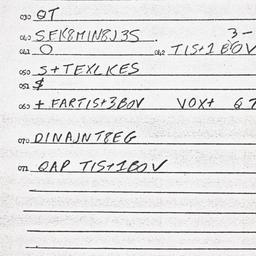 030 QT
040 SFK8MIN8J3S. 3-
041 O 042 TIS+1 BOV
050 S+TEXLKES
051 $
060 + FARTIS+3BOV VOX+ Q7
070 DINAJNT8EG
071 QAP TIS+1BOV